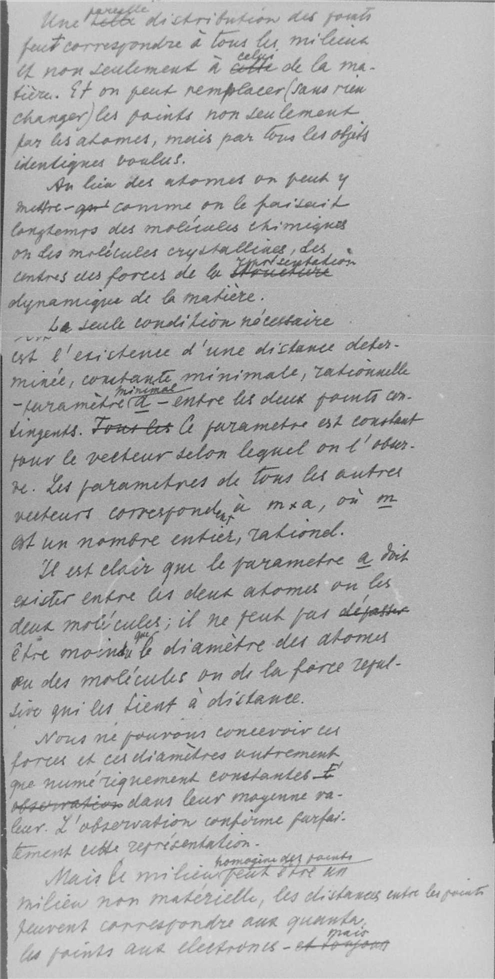 Une pareille cette distribution des points
peut correspondre à tous les milieux
et non seulement à celui cette de la ma-
tière. Et on peut remplacer (sans rien
changer) les points non seulement
par les atomes, mais par tous les objets
identiques voulus.
Au lieu des atomes on peut y
mettre - que comme on le faisait
longtemps des molécules chimiques
ou des molécules crystallines, des
centres des forces de la représentation structure
dynamique de la matière.
La seule condition nécessaire
est l'existence d'une distance deter-
minée, constante minimale, rationnelle
- paramètre minimal a - entre les deux points con-
tingents. Tous les Ce parametre est constant
pour le vecteur selon lequel on l'obser-
ve. Les parametres de tous les autres
vecteurs correspondent à m×a, où m
est un nombre entier, rationel.
Il est clair que le parametre a doit
exister entre les deux atomes ou les
deux molécules; il ne peut pas dépasser
être moindre que le diamètre des atomes
ou des molécules ou de la force repul-
sive qui les tient à distance.
Nous ne pouvons concevoir ces
forces et ces diamètres autrement
que numériquement constantes L'
observation dans leur moyenne va-
leur. L'observation confirme parfai-
tement cette représentation.
Mais le milieu homogène des points peut être un
milieu non matérielle, les distances entre les points
peuvent correspondre aux quanta,
les points aux electrones - mais et toujours